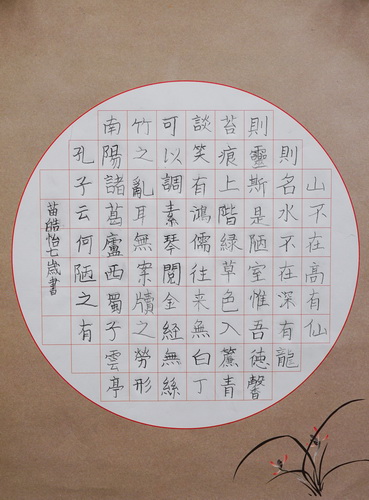 山不在高有仙
則名水不在深有龍
則靈斯是陋室惟吾徳馨
苔痕上階緑草色入簾青
談笑有鴻儒往来無白丁
可以調素琴閲金経無絲
竹之亂耳無案牘之勞形
南陽諸葛廬西蜀子雲亭
孔子云何陋之有
苗皓怡七歲書